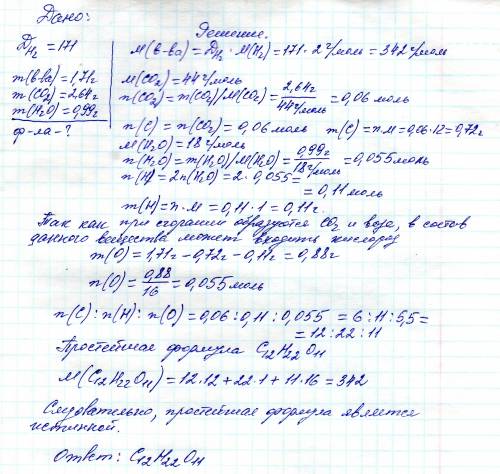 Дано:
Решение.
D_H₂ = 171
M(в-ва) = D_H₂ · M(H₂) = 171 · 2 г/моль = 342 г/моль
m(в-ва) = 1,71 г
m(CO₂) = 2,64 г
m(H₂O) = 0,99 г
ф-ла - ?
M(CO₂) = 44 г/моль
n(CO₂) = m(CO₂)/M(CO₂) = 2,64 г / 44 г/моль = 0,06 моль
n(C) = n(CO₂) = 0,06 моль m(C) = n·M = 0,06·12 = 0,72 г
M(H₂O) = 18 г/моль
n(H₂O) = m(H₂O)/M(H₂O) = 0,99 г / 18 г/моль = 0,055 моль
n(H) = 2n(H₂O) = 2 · 0,055 =
= 0,11 моль
m(H) = n·M = 0,11 · 1 = 0,11 г.
Так как при сгорании образуются CO₂ и вода, в состав
данного вещества может входить кислород
m(O) = 1,71 г - 0,72 г - 0,11 г = 0,88 г
n(O) = 0,88 / 16 = 0,055 моль
n(C) : n(H) : n(O) = 0,06 : 0,11 : 0,055 = 6 : 11 : 5,5 =
= 12 : 22 : 11
Простейшая формула C₁₂H₂₂O₁₁
M(C₁₂H₂₂O₁₁) = 12·12 + 22·1 + 11·16 = 342
Следовательно, простейшая формула является
истинной.
Ответ: C₁₂H₂₂O₁₁